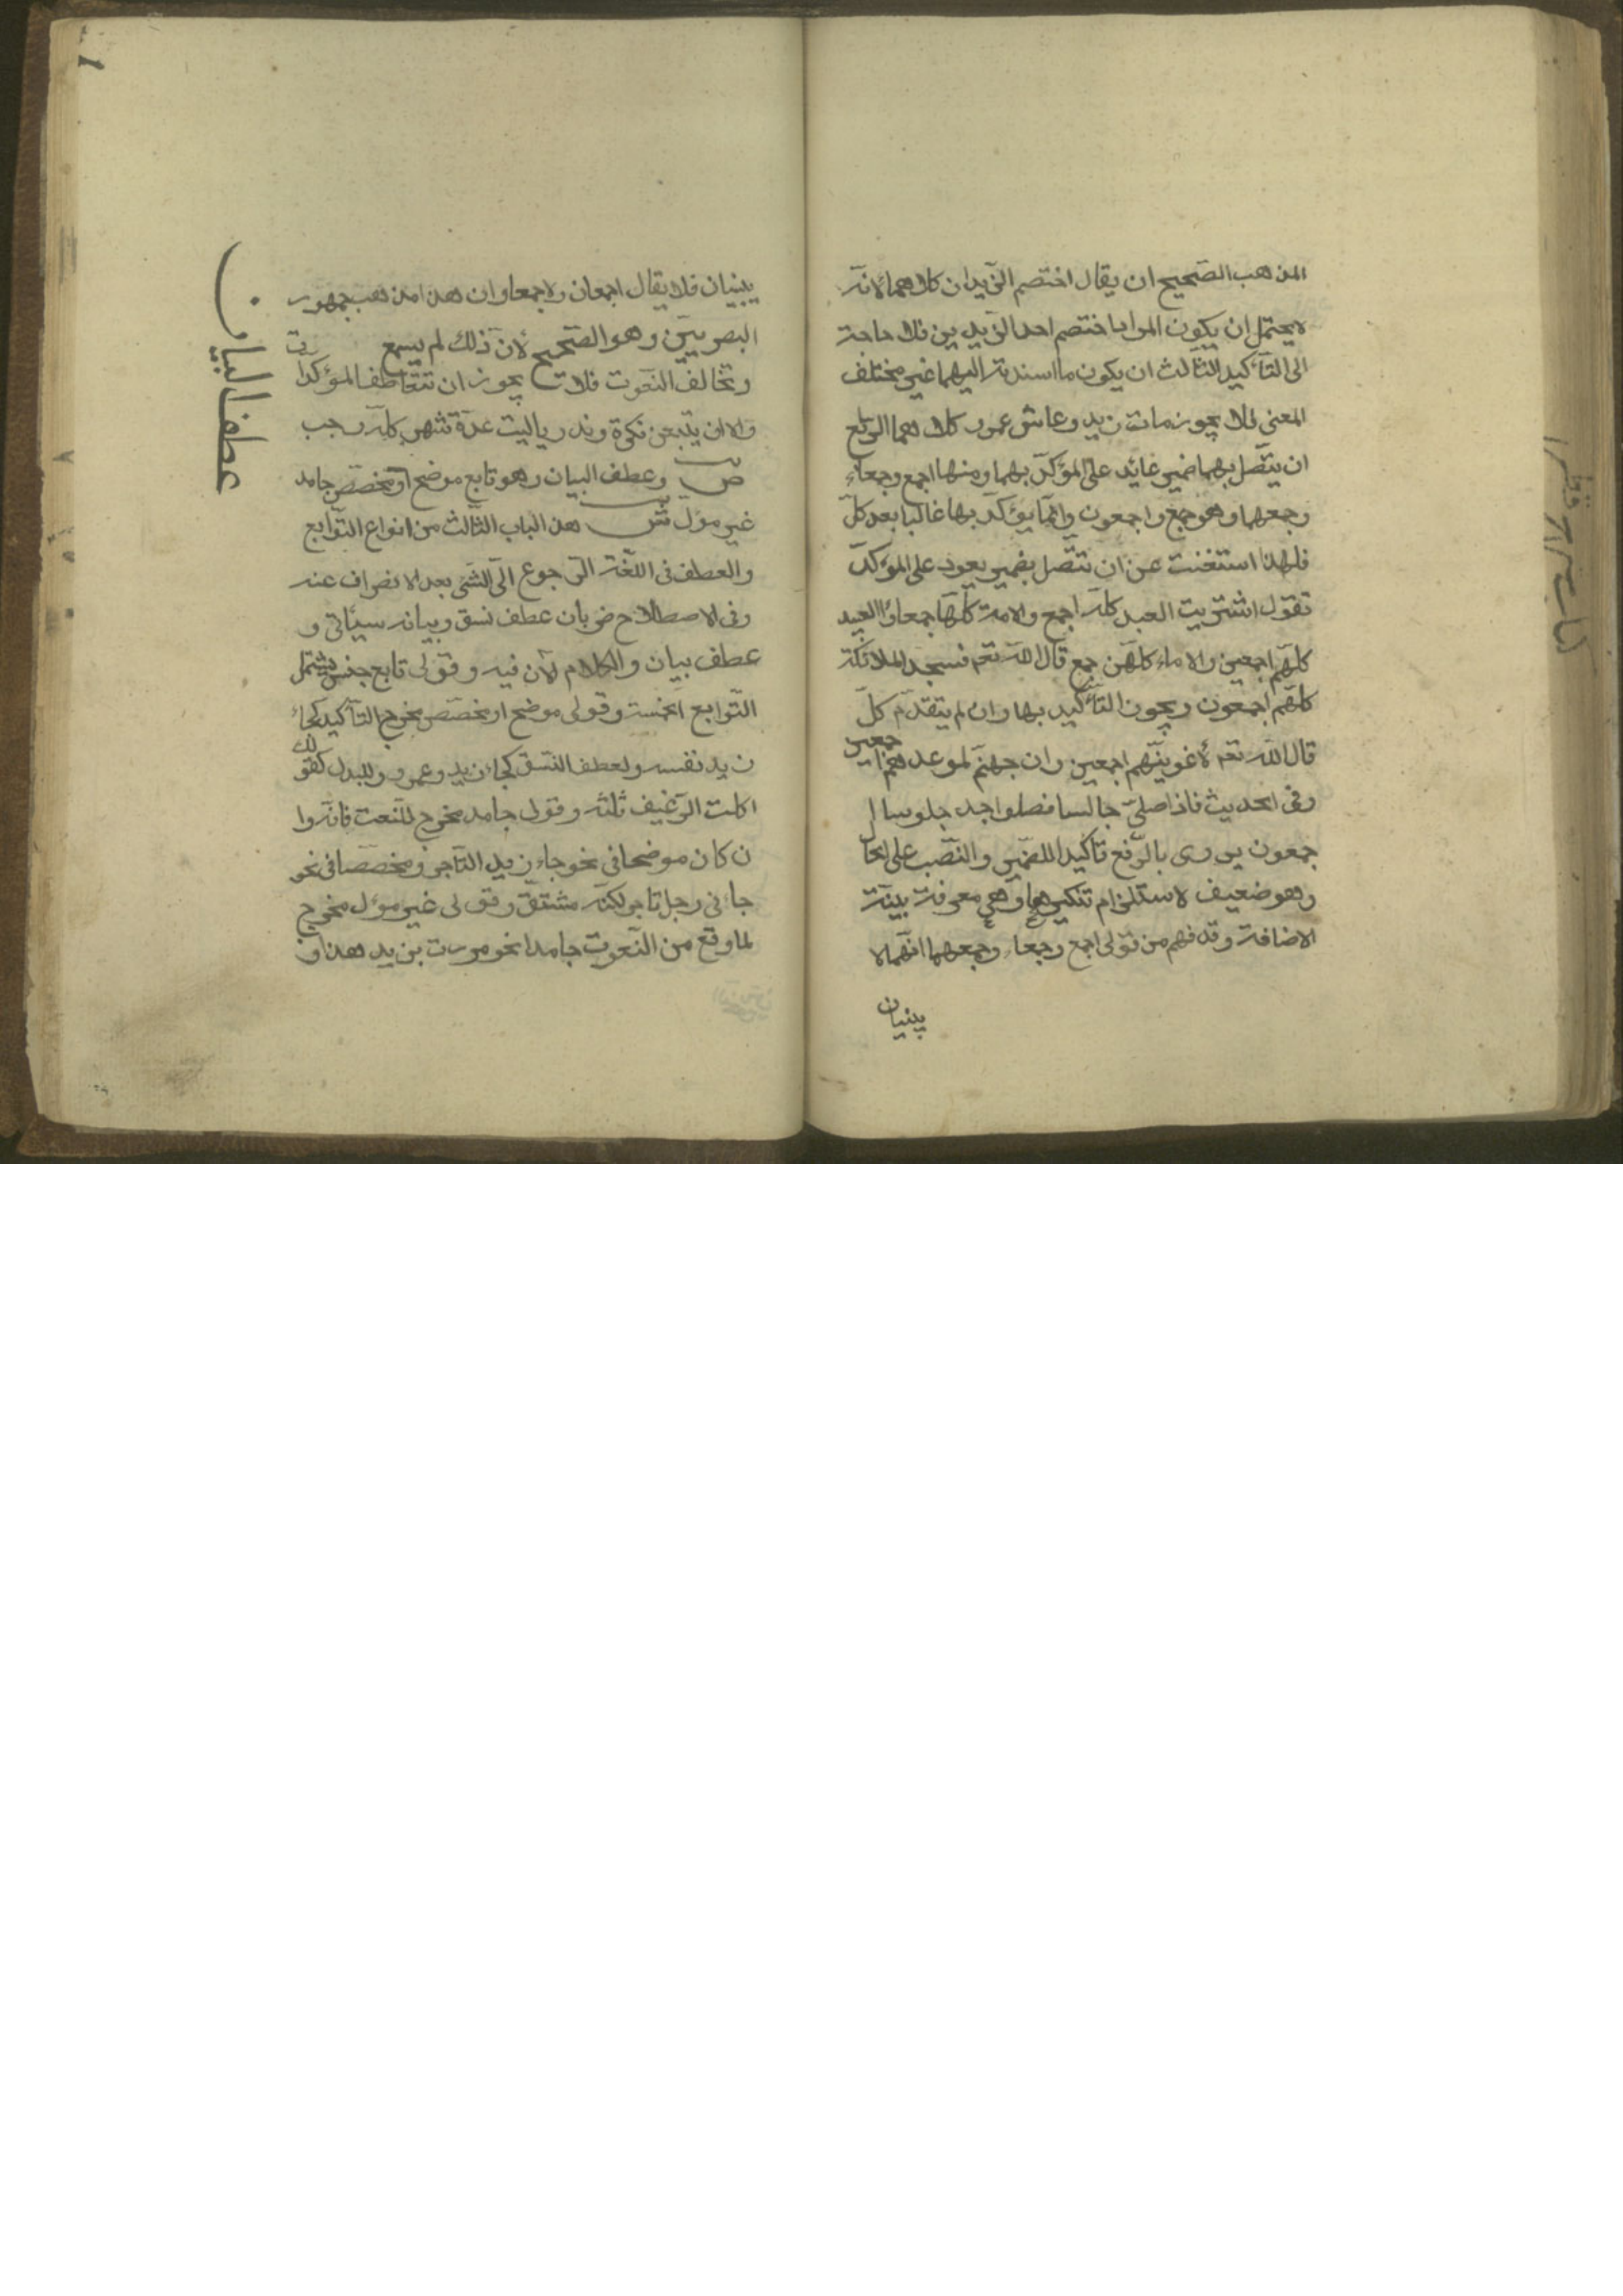 المذهب الصحيح ان يقال اختصم الزيدان كلاهما لانه
لا يحتمل ان يكون المراد اختصم احد الزيدين فلا حاجة
الى التأكيد الثالث ان يكون ما اسندته اليهما غير مختلف
المعنى فلا يجوز مات زيد وعاش عمرو كلاهما الرابع
ان يتصل بهما ضمير عائد على المؤكد بهما ومنها اجمع وجمعاء
وجمعهما وهو جمع واجمعون وانما يؤكد بها غالبا بعد كل
فلهذا استغنت عن ان تتصل بضمير يعود على المؤكد
تقول اشتريت العبد كله اجمع والامة كلها جمعاء والعبيد
كلهم اجمعين والاماء كلهن جمع قال الله تعم فسجد الملائكة
كلهم اجمعون ويجوز التأكيد بها وان لم يتقدم كل
قال الله تعم لأغوينهم اجمعين وان جهنم لموعدهم اجمعين
وفى الحديث فاذا صلى جالسا فصلوا جلوسا ا
جمعون يروى بالرفع تأكيدا للضمير والنصب على الحال
وهو ضعيف لاستلزام تنكيرها وهى معرفة بنية
الاضافة وقد فهم من قولى اجمع وجمعاء وجمعهما انهما لا
يبنيان
يبنيان فلا يقال اجمعان ولا جمعاوان وهذا مذهب جمهور
البصريين وهو الصحيح لأن ذلك لم يسمع
وتخالف النعوت فلا يجوز ان تتعاطف المؤكدات
ولا ان يتبعن نكرة وندر ياليت عدة شهر كله رجب
ص وعطف البيان وهو تابع موضح او مخصص جامد
غير مؤل ش هذا الباب الثالث من انواع التوابع
والعطف فى اللغة الرجوع الى الشئ بعد الانصراف عنه
وفى الاصطلاح ضربان عطف نسق وبيانه سيأتى و
عطف بيان والكلام لآن فيه وقولى تابع جنس يشتمل
التوابع الخمسة وقولى موضح او مخصص مخرج التأكيد كجاء
زيد نفسه ولعطف النسق كجاء زيد وعمرو وللبدل كقولك
اكلت الرغيف ثلثه وقولى جامد مخرج للنعت فانه وا
ن كان موضحا فى نحو جاء زيد التاجر ومخصصا فى نحو
جائنى رجل تاجر لكنه مشتق وقولى غير مؤل مخرج
لما وقع من النعوت جامدا نحو مررت بزيد هذا و
عطف البيان